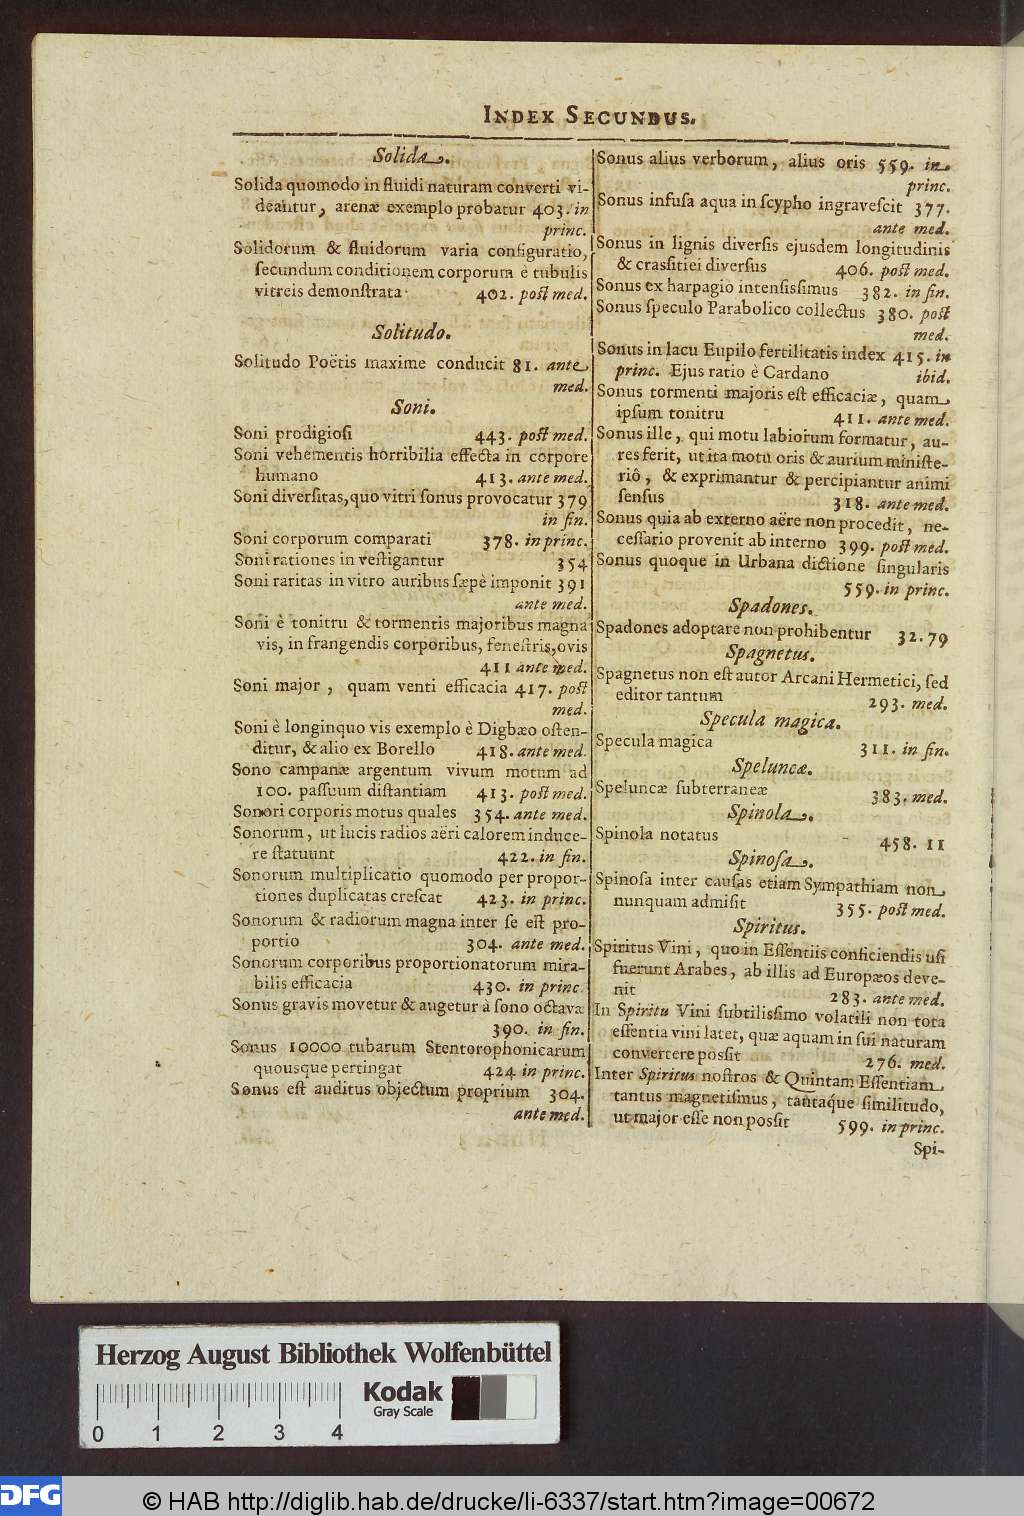 INDEX SECUNDUS.
Solida.
Solida quomodo in fluidi naturam converti vi-
deantur, arenæ exemplo probatur 403. in
princ.
Solidorum & fluidorum varia configuratio,
ſecundum conditionem corporum è tubulis
vitreis demonſtrata 402. poſt med.
Solitudo.
Solitudo Poëtis maxime conducit 81. ante
med.
Soni.
Soni prodigioſi 443. poſt med.
Soni vehementis horribilia effecta in corpore
humano 413. ante med.
Soni diverſitas, quo vitri ſonus provocatur 379
in fin.
Soni corporum comparati 378. in princ.
Soni rationes in veſtigantur 354
Soni raritas in vitro auribus ſæpè imponit 391
ante med.
Soni è tonitru & tormentis majoribus magna
vis, in frangendis corporibus, feneſtris, ovis
411 ante med.
Soni major, quam venti efficacia 417. poſt
med.
Soni è longinquo vis exemplo è Digbæo oſten-
ditur, & alio ex Borello 418. ante med.
Sono campanæ argentum vivum motum ad
100. paſſuum diſtantiam 413. poſt med.
Sonori corporis motus quales 354. ante med.
Sonorum, ut lucis radios aëri calorem induce-
re ſtatuunt 422. in fin.
Sonorum multiplicatio quomodo per propor-
tiones duplicatas creſcat 423. in princ.
Sonorum & radiorum magna inter ſe eſt pro-
portio 304. ante med.
Sonorum corporibus proportionatorum mira-
bilis efficacia 430. in princ.
Sonus gravis movetur & augetur à ſono octavæ
390. in fin.
Sonus 10000 tubarum Stentorophonicarum
quousque pertingat 424 in princ.
Sonus eſt auditus objectum proprium 304.
ante med.
Sonus alius verborum, alius oris 559. in
princ.
Sonus infuſa aqua in ſcypho ingraveſcit 377.
ante med.
Sonus in lignis diverſis ejusdem longitudinis
& craſſitiei diverſus 406. poſt med.
Sonus ex harpagio intenſiſſimus 382. in fin.
Sonus ſpeculo Parabolico collectus 380. poſt
med.
Sonus in lacu Eupilo fertilitatis index 415. in
princ. Ejus ratio è Cardano ibid.
Sonus tormenti majoris eſt efficaciæ, quam
ipſum tonitru 411. ante med.
Sonus ille, qui motu labiorum formatur, au-
res ferit, ut ita motu oris & aurium miniſte-
riô, & exprimantur & percipiantur animi
ſenſus 318. ante med.
Sonus quia ab externo aëre non procedit, ne-
ceſſario provenit ab interno 399. poſt med.
Sonus quoque in Urbana dictione ſingularis
559. in princ.
Spadones.
Spadones adoptare non prohibentur 32. 79
Spagnetus.
Spagnetus non eſt autor Arcani Hermetici, ſed
editor tantum 293. med.
Specula magica.
Specula magica 311. in fin.
Speluncæ.
Speluncæ ſubterraneæ 383. med.
Spinola.
Spinola notatus 458. 11
Spinoſa.
Spinoſa inter cauſas etiam Sympathiam non
nunquam admiſit 355. poſt med.
Spiritus.
Spiritus Vini, quo in Eſſentiis conficiendis uſi
fuerunt Arabes, ab illis ad Europæos deve-
nit 283. ante med.
In Spiritu Vini ſubtiliſſimo volatili non tota
eſſentia vini latet, quæ aquam in ſui naturam
convertere poſſit 276. med.
Inter Spiritus noſtros & Quintam Eſſentiam
tantus magnetiſmus, tantaq́ue ſimilitudo,
ut major eſſe non poſſit 599. in princ.
Spi-
Herzog August Bibliothek Wolfenbüttel
Kodak
Gray Scale
0 1 2 3 4
DFG
© HAB http://diglib.hab.de/drucke/li-6337/start.htm?image=00672